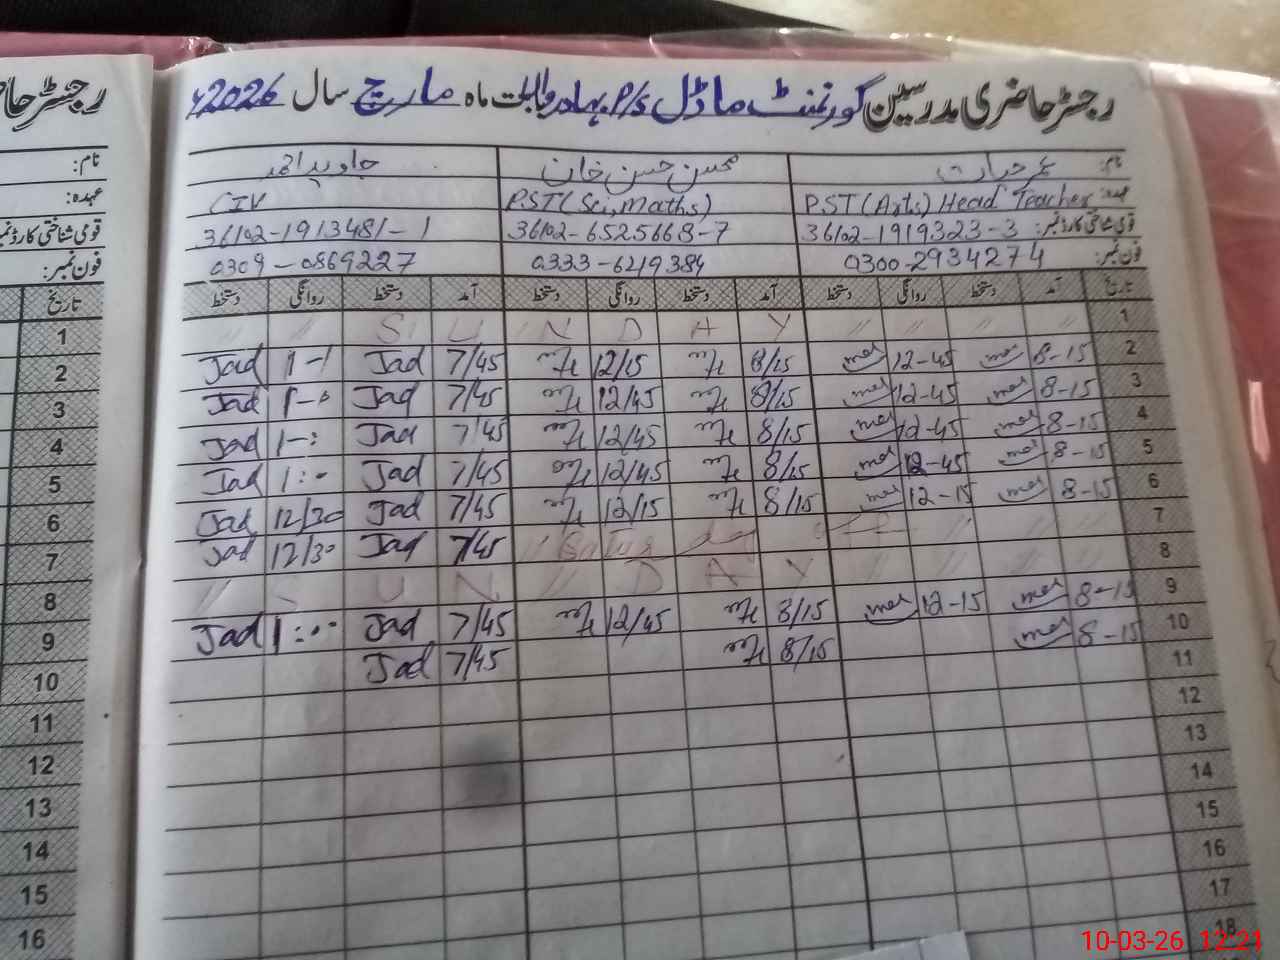 رجسٹر حاضری مدرسین گورنمنٹ ماڈل P/S بہادر والا بابت ماہ مارچ سال 2026ء
نام: عمر حیات محسن حسن خان جاوید احمد
عہدہ: PST (Arts) Head Teacher PST (Sci, Maths) CIV
قومی شناختی کارڈ نمبر: 36102-1919323-3 36102-6525668-7 36102-1913481-1
فون نمبر: 0300-2934274 0333-6219384 0309-0869227
تاریخ آمد دستخط روانگی دستخط آمد دستخط روانگی دستخط آمد دستخط روانگی دستخط
1 // // // // S U N D A Y // //
2 8-15 12-45 8/15 12/15 7/45 Jad 1-1 Jad
3 8-15 12-45 8/15 12/45 7/45 Jad 1-0 Jad
4 8-15 12-45 8/15 12/45 7/45 Jad 1-: Jad
5 8-15 12-45 8/15 12/45 7/45 Jad 1:0 Jad
6 8-15 12-15 8/15 12/15 7/45 Jad 12/30 Jad
7 // // // Saturday off 7/45 Jad 12/30 Jad
8 // // // S U N // D A Y //
9 8-15 12-15 8/15 12/45 7/45 Jad 1:00 Jad
10 8-15 8/15 7/45 Jad
11
12
13
14
15
16
17
18
رجسٹر حا
نام:
عہدہ:
قومی شناختی کارڈ نمبر
فون نمبر:
تاریخ
1
2
3
4
5
6
7
8
9
10
11
12
13
14
15
16
10-03-26 12:21